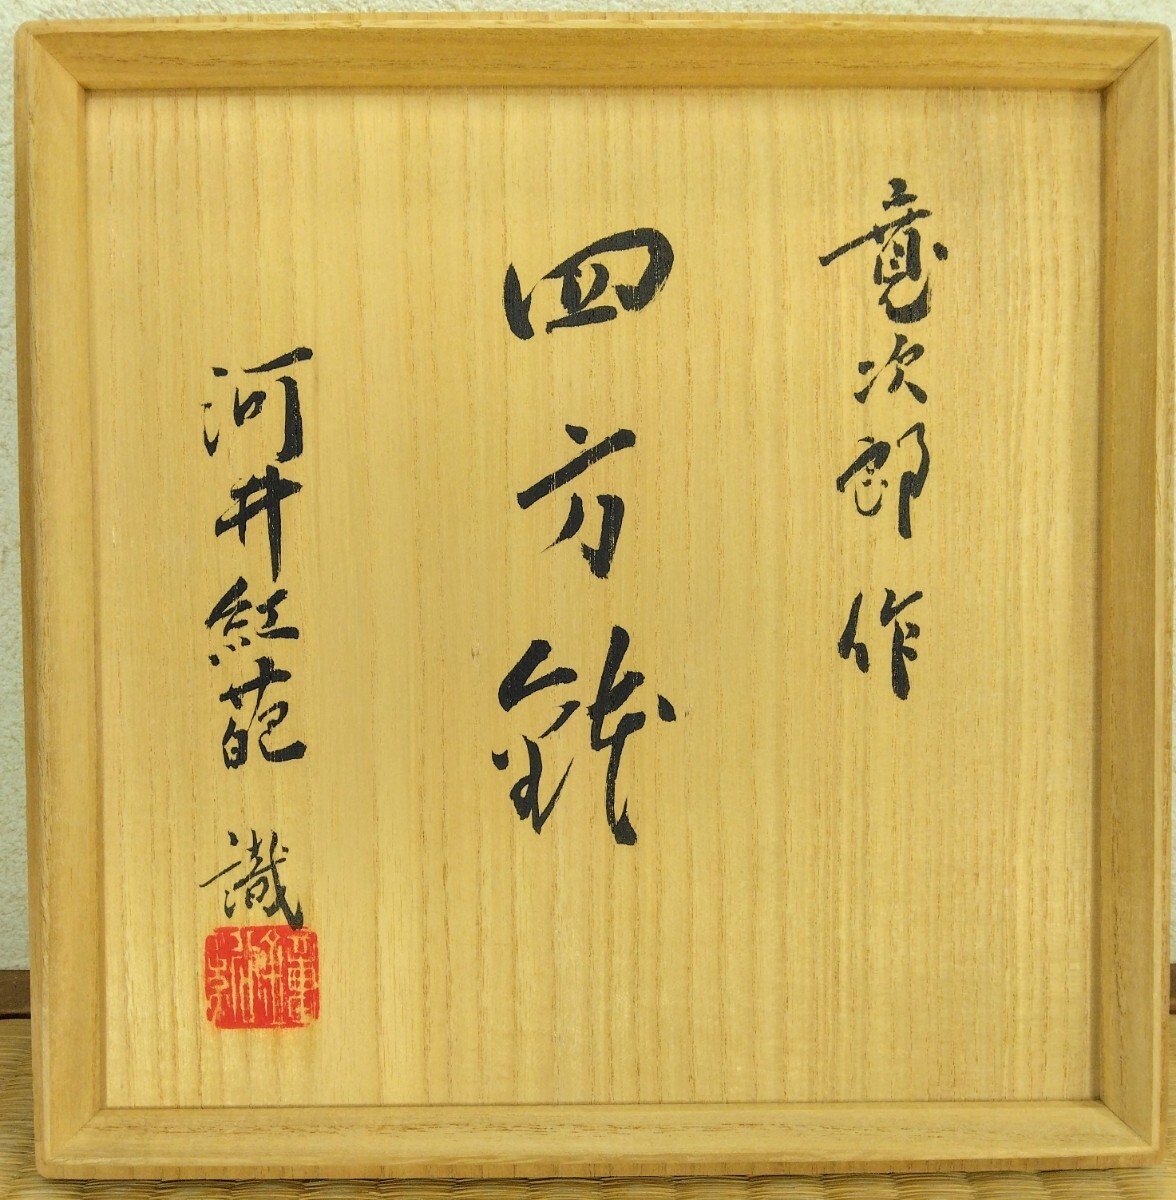 寛次郎 作
四方鉢
河井紅葩 識